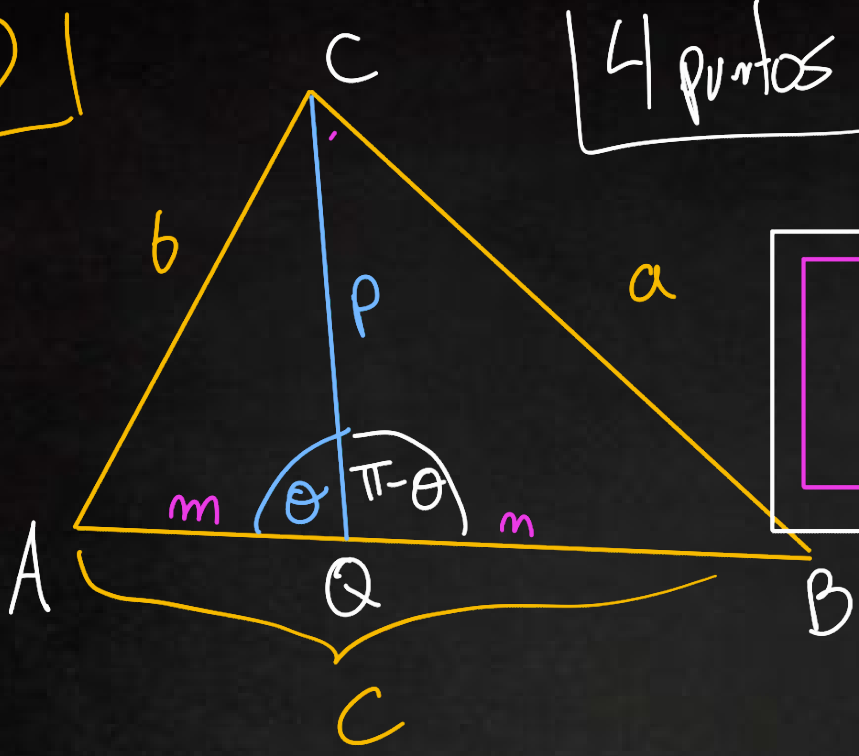 C
4 puntos
b
p
a
m
θ
π-θ
n
A
Q
B
C